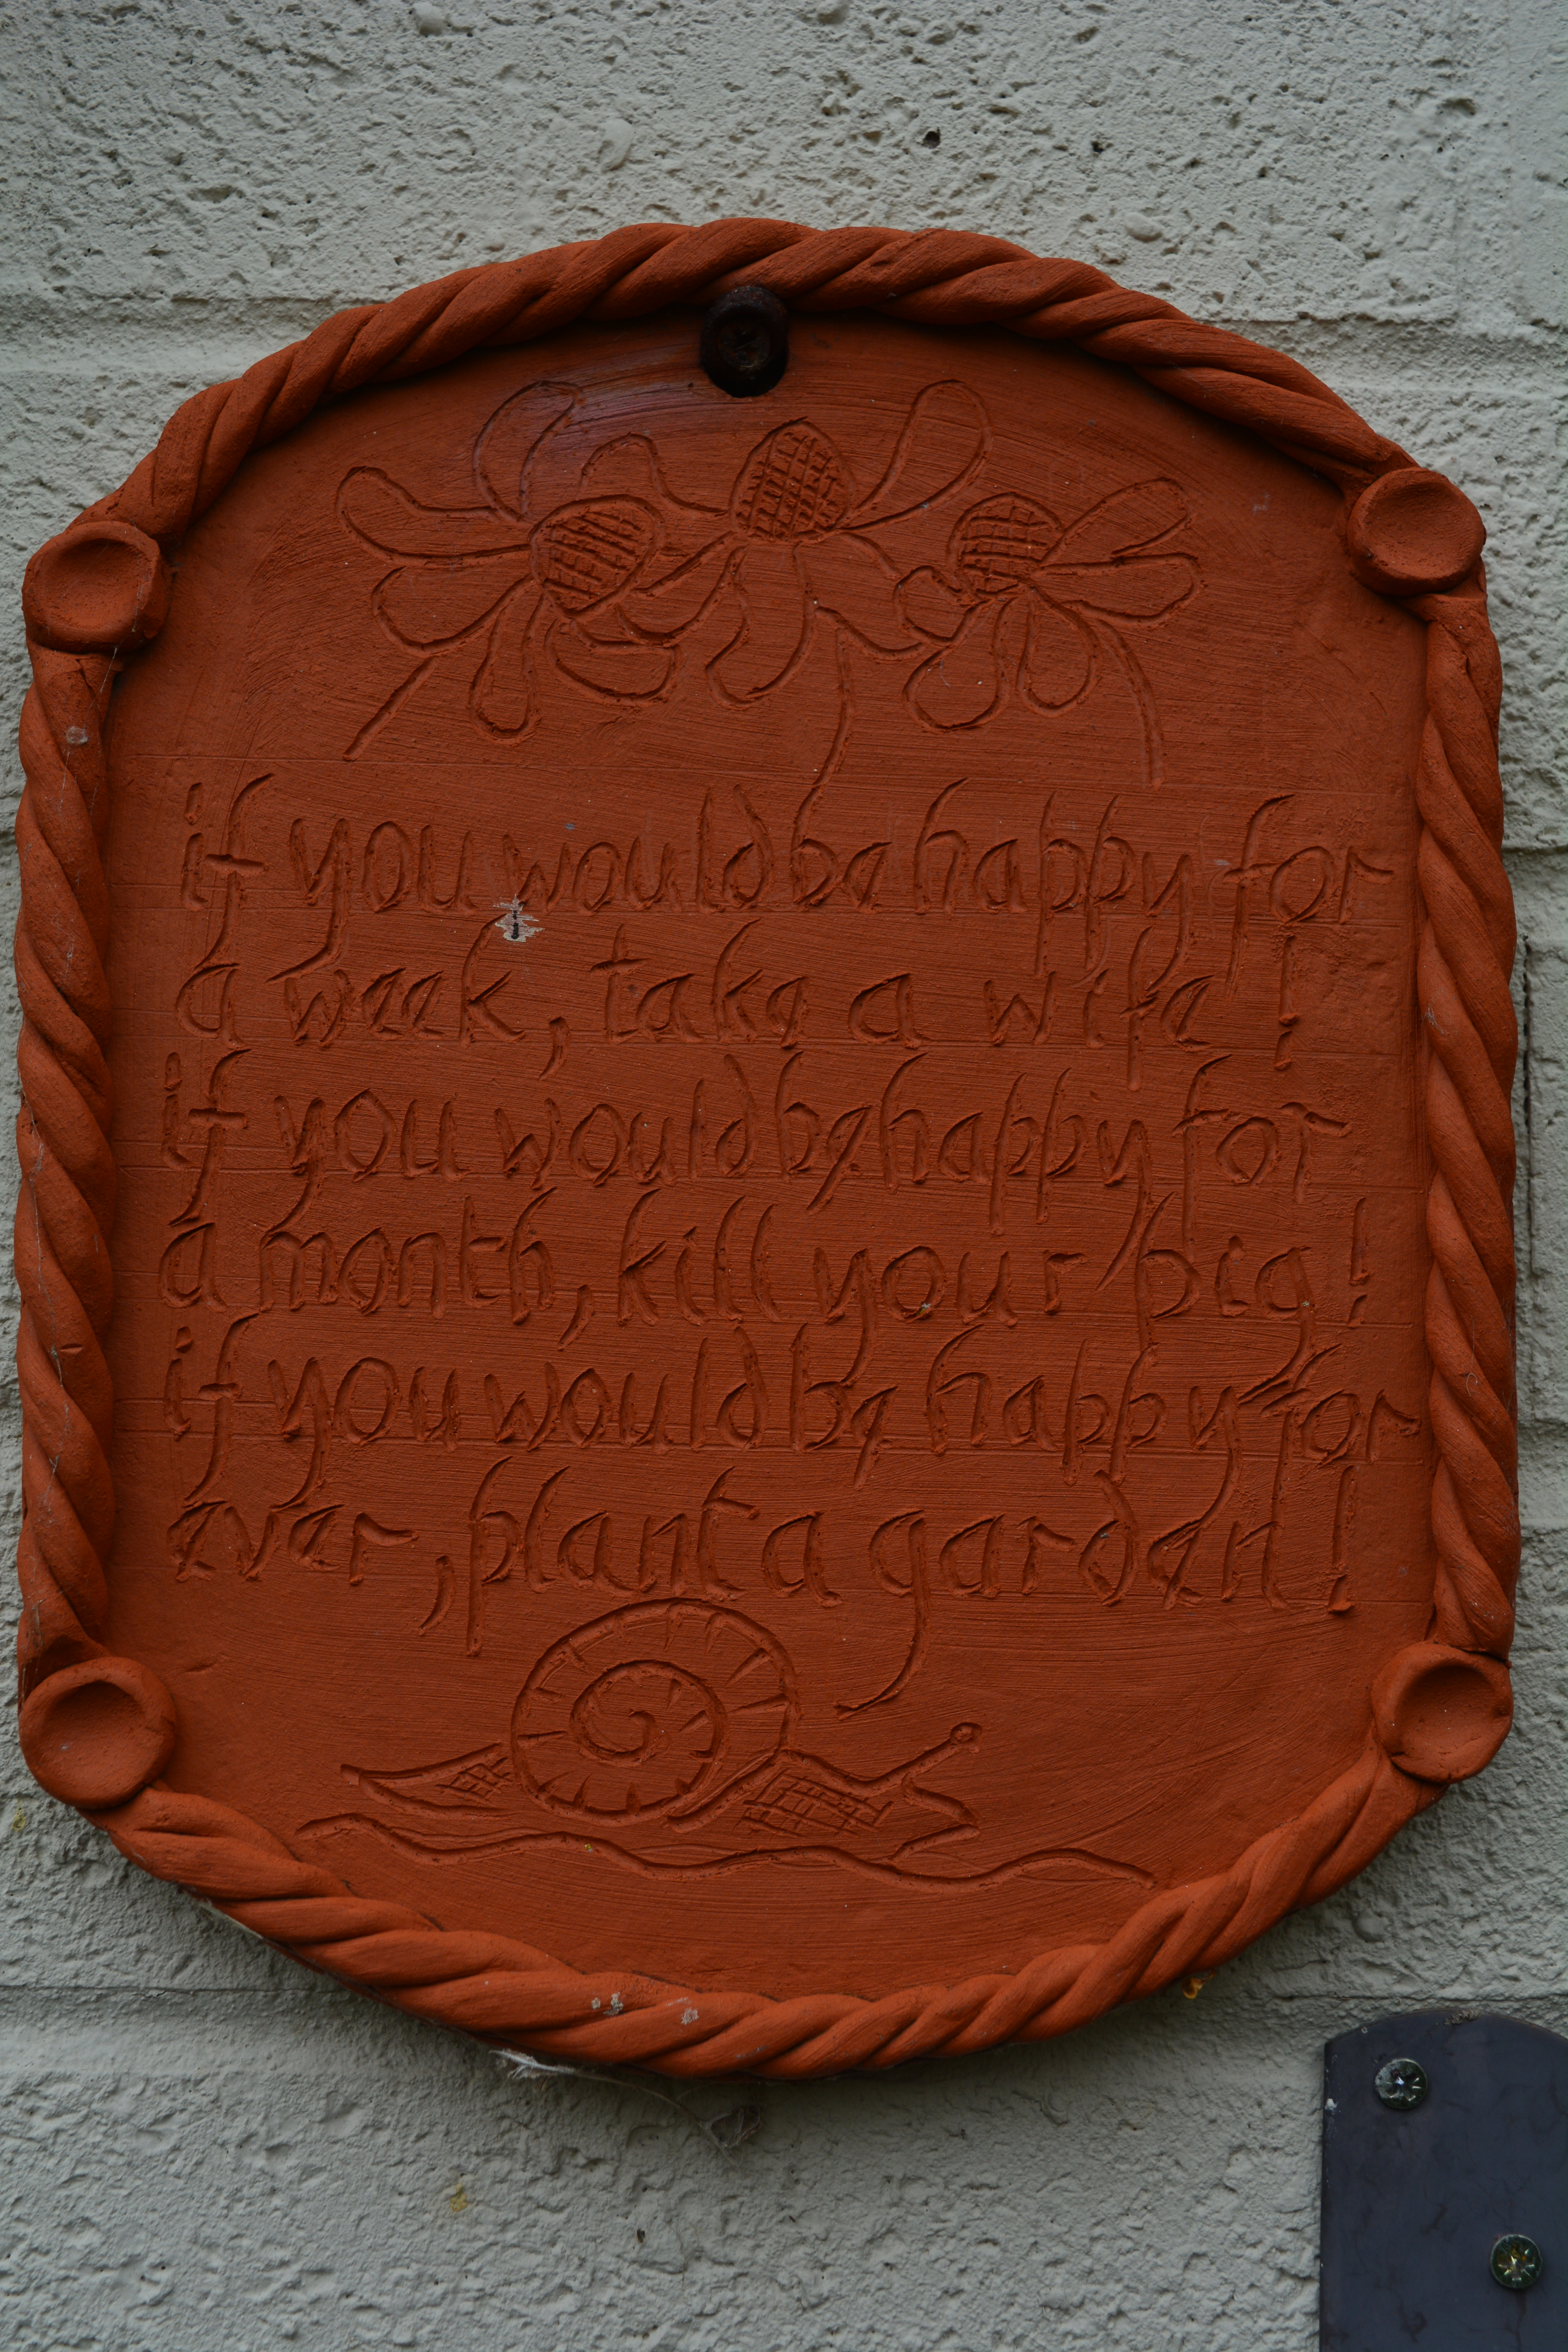 if you would be happy for
a week, take a wife!
if you would be happy for
a month, kill your pig!
if you would be happy for
ever, plant a garden!